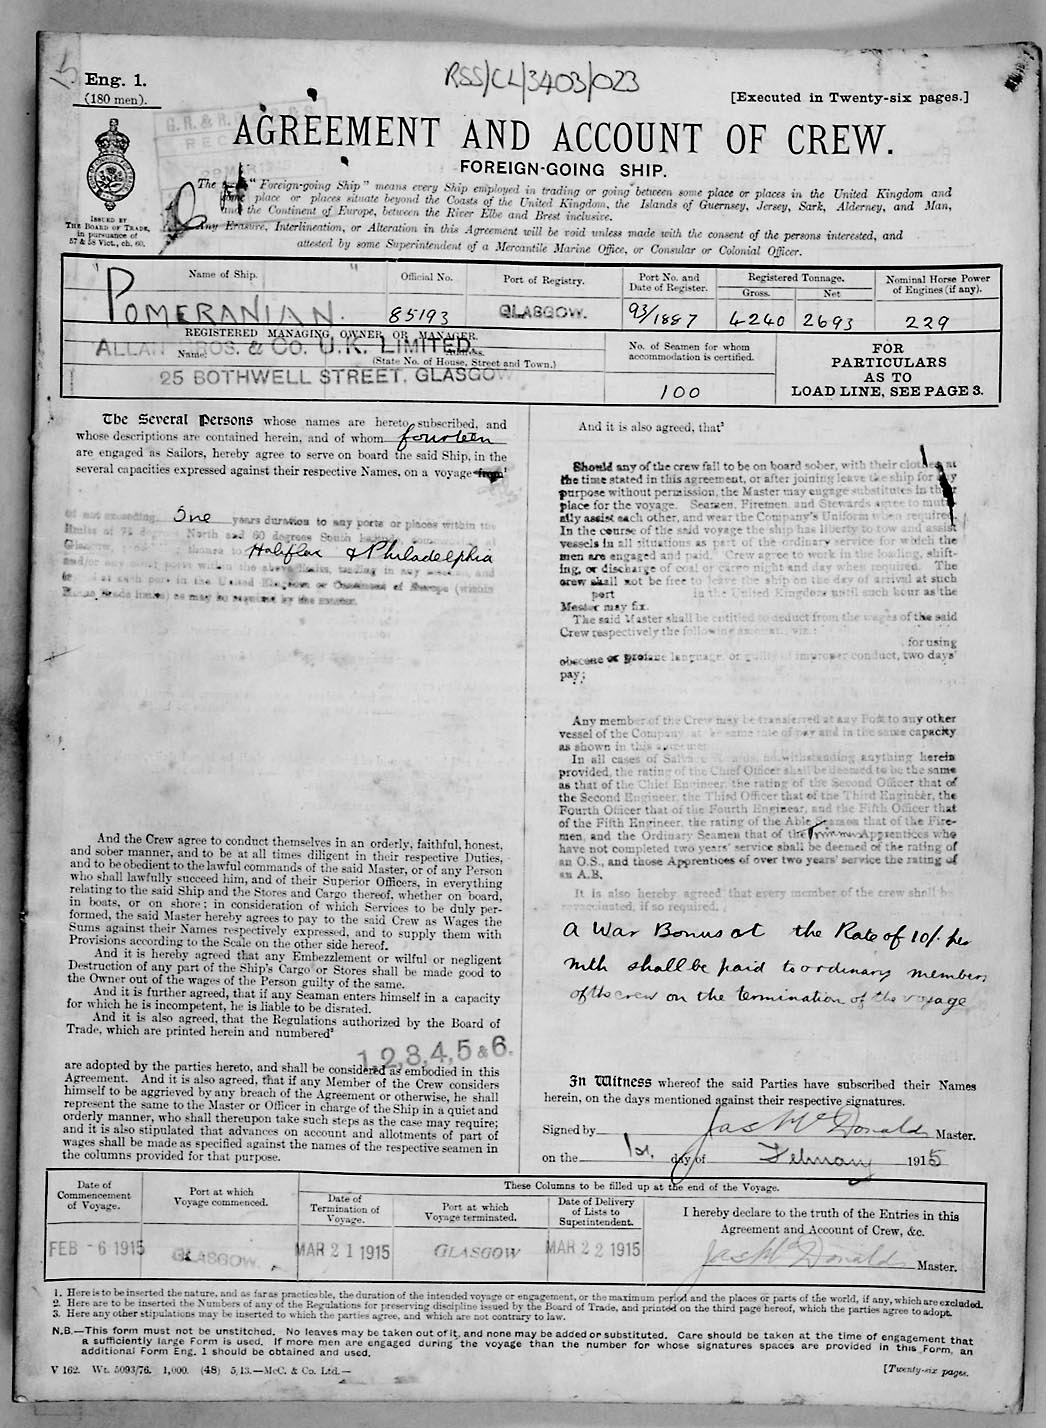 Eng. 1.
(180 men).
RSS/CL/3403/023
[Executed in Twenty-six pages.]
AGREEMENT AND ACCOUNT OF CREW.
FOREIGN-GOING SHIP.
ISSUED BY
THE BOARD OF TRADE,
in pursuance of
57 & 58 Vict., ch. 60.
The "Foreign-going Ship" means every Ship employed in trading or going between some place or places in the United Kingdom and
some place or places situate beyond the Coasts of the United Kingdom, the Islands of Guernsey, Jersey, Sark, Alderney, and Man,
and the Continent of Europe, between the River Elbe and Brest inclusive.
Any Erasure, Interlineation, or Alteration in this Agreement will be void unless made with the consent of the persons interested, and
attested by some Superintendent of a Mercantile Marine Office, or Consular or Colonial Officer.
Name of Ship.
Official No.
Port of Registry.
Port No. and
Date of Register.
Registered Tonnage.
Gross.
Net
Nominal Horse Power
of Engines (if any).
"POMERANIAN."
85193
GLASGOW.
93/1887
4240
2693
229
REGISTERED MANAGING OWNER OR MANAGER.
Name.
Address.
(State No. of House, Street and Town.)
ALLAN BROS. & CO. U.K. LIMITED.
25 BOTHWELL STREET, GLASGOW
No. of Seamen for whom
accommodation is certified.
100
FOR
PARTICULARS
AS TO
LOAD LINE, SEE PAGE 3.
The Several Persons whose names are hereto subscribed, and
whose descriptions are contained herein, and of whom fourteen
are engaged as Sailors, hereby agree to serve on board the said Ship, in the
several capacities expressed against their respective Names, on a voyage from¹
Of not exceeding One years duration to any ports or places within the
limits of 75 degrees North and 60 degrees South
Halifax & Philadelphia
And the Crew agree to conduct themselves in an orderly, faithful, honest,
and sober manner, and to be at all times diligent in their respective Duties,
and to be obedient to the lawful commands of the said Master, or of any Person
who shall lawfully succeed him, and of their Superior Officers, in everything
relating to the said Ship and the Stores and Cargo thereof, whether on board,
in boats, or on shore; in consideration of which Services to be duly per-
formed, the said Master hereby agrees to pay to the said Crew as Wages the
Sums against their Names respectively expressed, and to supply them with
Provisions according to the Scale on the other side hereof.
And it is hereby agreed that any Embezzlement or wilful or negligent
Destruction of any part of the Ship's Cargo or Stores shall be made good to
the Owner out of the wages of the Person guilty of the same.
And it is further agreed, that if any Seaman enters himself in a capacity
for which he is incompetent, he is liable to be disrated.
And it is also agreed, that the Regulations authorized by the Board of
Trade, which are printed herein and numbered²
1,2,3,4,5 & 6.
are adopted by the parties hereto, and shall be considered as embodied in this
Agreement. And it is also agreed, that if any Member of the Crew considers
himself to be aggrieved by any breach of the Agreement or otherwise, he shall
represent the same to the Master or Officer in charge of the Ship in a quiet and
orderly manner, who shall thereupon take such steps as the case may require;
and it is also stipulated that advances on account and allotments of part of
wages shall be made as specified against the names of the respective seamen in
the columns provided for that purpose.
And it is also agreed, that³
Should any of the crew fail to be on board sober, with their clothes at
the time stated in this agreement, or after joining leave the ship for any
purpose without permission, the Master may engage substitutes in their
place for the voyage. Seamen, Firemen and Stewards agree to mutu-
ally assist each other, and wear the Company's Uniform when required.
In the course of the said voyage the ship has liberty to tow and assist
vessels in all situations as part of the ordinary service for which the
men are engaged and paid. Crew agree to work in the loading, shift-
ing, or discharge of coal or cargo night and day when required. The
crew shall not be free to leave the ship on the day of arrival at such
port in the United Kingdom until such hour as the
Master may fix.
The said Master shall be entitled to deduct from the wages of the said
Crew respectively the following amounts, viz.:
for using
obscene or profane language, or guilty of improper conduct, two days'
pay;
Any member of the Crew may be transferred at any Port to any other
vessel of the Company at the same rate of pay and in the same capacity
as shown in this agreement
In all cases of Salvage Awards, notwithstanding anything herein
provided, the rating of the Chief Officer shall be deemed to be the same
as that of the Chief Engineer, the rating of the Second Officer that of
the Second Engineer, the Third Officer that of the Third Engineer, the
Fourth Officer that of the Fourth Engineer, and the Fifth Officer that
of the Fifth Engineer, the rating of the Able Seaman that of the Fire-
men, and the Ordinary Seamen that of the Trimmers Apprentices who
have not completed two years' service shall be deemed of the rating of
an O.S., and those Apprentices of over two years' service the rating of
an A.B.
It is also hereby agreed that every member of the crew shall be
revaccinated, if so required.
A War Bonus at the Rate of 10/. per
mth shall be paid to ordinary members
of the crew on the termination of the voyage
In Witness whereof the said Parties have subscribed their Names
herein, on the days mentioned against their respective signatures.
Signed by Jas McDonald Master.
on the 1st. day of February 1915
Date of
Commencement
of Voyage.
Port at which
Voyage commenced.
These Columns to be filled up at the end of the Voyage.
Date of
Termination of
Voyage.
Port at which
Voyage terminated.
Date of Delivery
of Lists to
Superintendent.
I hereby declare to the truth of the Entries in this
Agreement and Account of Crew, &c.
FEB - 6 1915
GLASGOW.
MAR 21 1915
GLASGOW
MAR 22 1915
Jas McDonald Master.
1. Here is to be inserted the nature, and as far as practicable, the duration of the intended voyage or engagement, or the maximum period and the places or parts of the world, if any, which are excluded.
2. Here are to be inserted the Numbers of any of the Regulations for preserving discipline issued by the Board of Trade, and printed on the third page hereof, which the parties agree to adopt.
3. Here any other stipulations may be inserted to which the parties agree, and which are not contrary to law.
N.B.—This form must not be unstitched. No leaves may be taken out of it, and none may be added or substituted. Care should be taken at the time of engagement that
a sufficiently large Form is used. If more men are engaged during the voyage than the number for whose signatures spaces are provided in this Form, an
additional Form Eng. 1 should be obtained and used.
V 162. Wt. 5093/76. 1,000. (48) 5/13.—McC. & Co. Ltd.—
[Twenty-six pages.